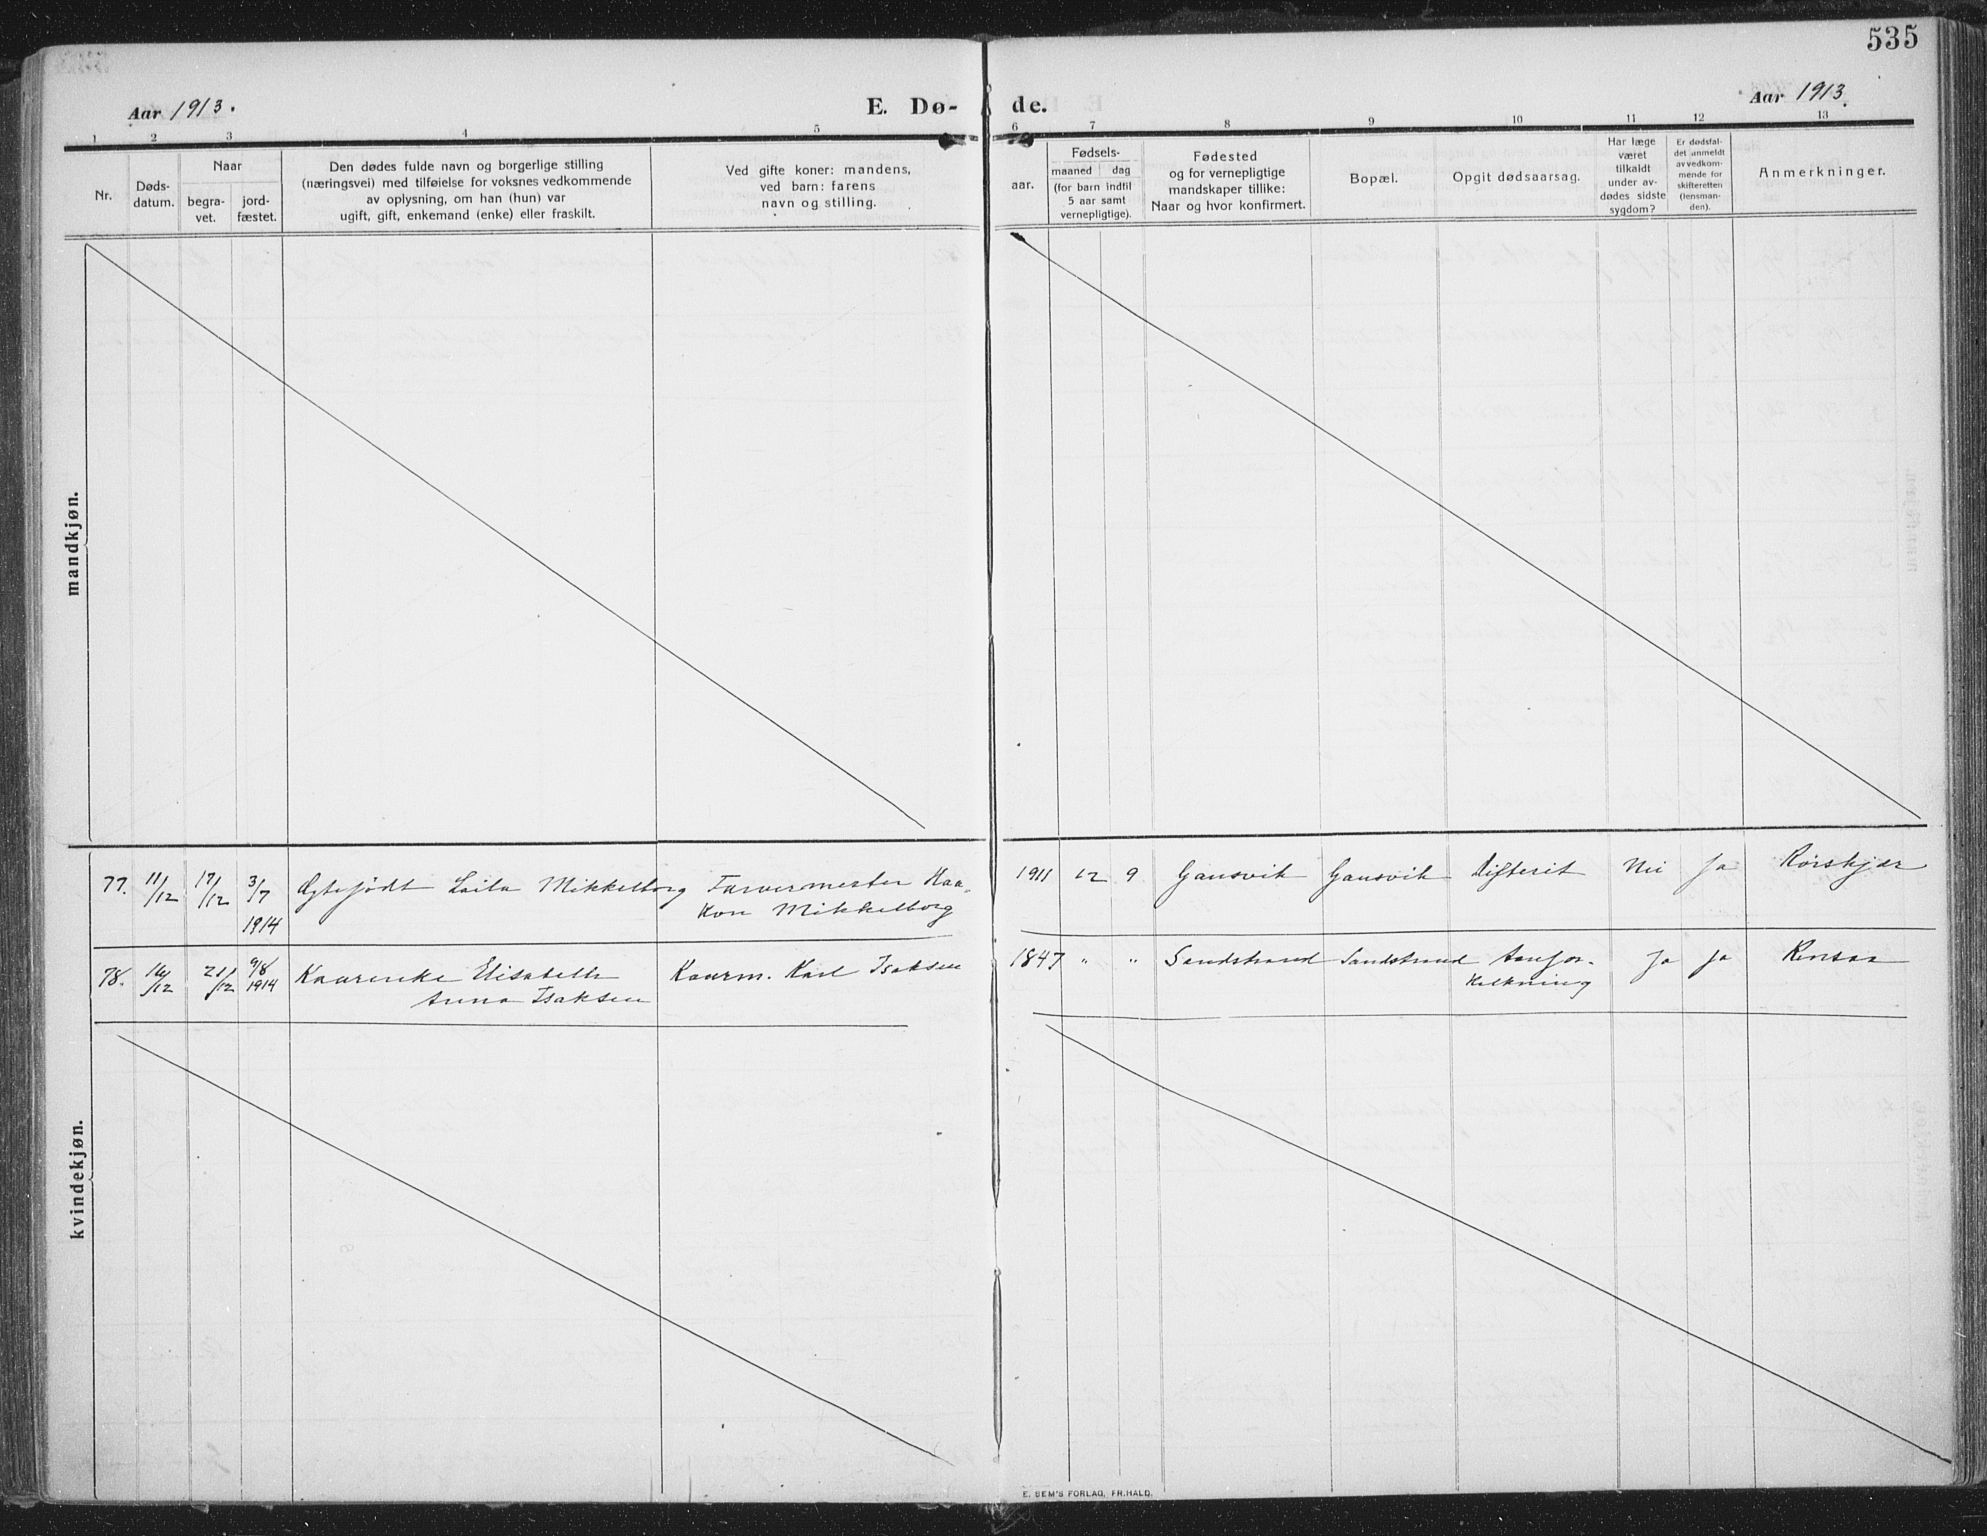 535
Aar 1913.
E. Dø-
de.
Aar 1913.
1 2 3 4 5 6 7 8 9 10 11 12 13
Nr.
Døds-
datum.
Naar
begra-
vet.
jord-
fæstet.
Den dødes fulde navn og borgerlige stilling
(næringsvei) med tilføielse for voksnes vedkommende
av oplysning, om han (hun) var
ugift, gift, enkemand (enke) eller fraskilt.
Ved gifte koner: mandens,
ved barn: farens
navn og stilling.
Fødsels-
aar.
maaned dag
(for barn indtil
5 aar samt
vernepligtige).
Fødested
og for vernepligtige
mandskaper tillike:
Naar og hvor konfirmert.
Bopæl.
Opgit dødsaarsag.
Har læge
været
tilkaldt
under av-
dødes sidste
sygdom?
Er dødsfal-
det anmeldt
av vedkom-
mende for
skifteretten
(lensman-
den).
Anmerkninger.
mandkjøn.
77. 11/12 17/12 3/7 Ægtefødt Laila Mikkelborg Farvermester Haa- 1911 12 9 Gansvik Gansvik Difterit Nei Ja Rörskjær
1914 kon Mikkelborg
78. 16/12 21/12 9/8 Kaarenke Elisabeth Kaarm. Karl Isaksen 1847 " " Sandstrand Sandstrand Aarefor- Ja Ja Rensaa
1914 Anna Isaksen kalkning
kvindekjøn.
E. SEM'S FORLAG, FR.HALD.